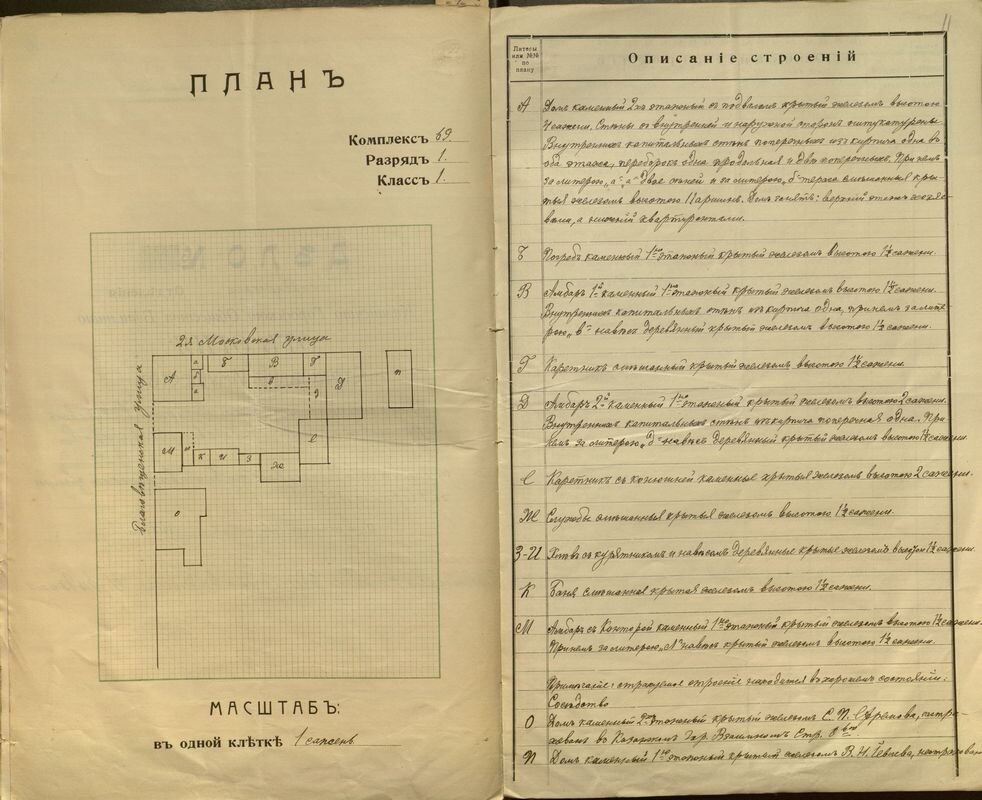 ПЛАНЪ
Комплексъ 69.
Разрядъ 1.
Классъ 1.
2я Московская улица
Благовѣщенская улица
А
а
б
а
Б
В
в
Г
Д
д
Е
П
М
К
И
З
Ж
О
МАСШТАБЪ:
въ одной клѣткѣ 1 сажень
11
Литеры или №№ по плану
Описаніе строеній
А Домъ каменный 2хъ этажный съ подваломъ крытый желѣзомъ высотою
4 сажени. Стѣны съ внутренней и наружной сторонъ оштукатурены.
Внутреннихъ капитальныхъ стѣнъ поперечныхъ изъ кирпича одна въ
оба этажа, переборокъ одна продольная и двѣ поперечныхъ. При немъ
за литерою „а“-„а“ двое сѣней и за литерою „б“ терраса смѣшанныя кры-
тыя желѣзомъ высотою аршинъ. Домъ занятъ: верхній этажъ хозяе-
вами, а нижній квартирантами.
Б Погребъ каменный 1но этажный крытый желѣзомъ высотою 1½ сажени.
В Амбаръ 1й каменный 1но этажный крытый желѣзомъ высотою 1½ сажени.
Внутреннихъ капитальныхъ стѣнъ изъ кирпича одна, при немъ за лите-
рою „в“ навѣсъ деревянный крытый желѣзомъ высотою 1½ сажени.
Г Каретникъ смѣшанный крытый желѣзомъ высотою 1½ сажени.
Д Амбаръ 2й каменный 1но этажный крытый желѣзомъ высотою 2 сажени.
Внутреннихъ капитальныхъ стѣнъ изъ кирпича поперечная одна. При
немъ за литерою „д“ навѣсъ деревянный крытый желѣзомъ высотою 1½ сажени.
Е Каретникъ съ конюшней каменные крытыя желѣзомъ высотою 2 сажени.
Ж Службы смѣшанныя крытыя желѣзомъ высотою 1½ сажени.
З-И Хлѣвъ съ курятникомъ и навѣсомъ деревянные крытые желѣзомъ высотою 1½ сажени.
К Баня смѣшанная крытая желѣзомъ высотою 1½ сажени.
М Амбаръ съ Конторой каменный 1но этажный крытый желѣзомъ высотою 1½ сажени.
При немъ за литерою „Л“ навѣсъ крытый желѣзомъ высотою 1½ сажени.
Примѣчаніе: страхуемое строеніе находится въ хорошемъ состояніи.
Сосѣдство
О Домъ каменный 2хъ этажный крытый желѣзомъ С. П. Ефремова, застра-
хованъ въ Казанскомъ Гор. Взаимномъ Стр. О-вѣ
П Домъ каменный 1но этажный крытый желѣзомъ В. Н. нестрахован